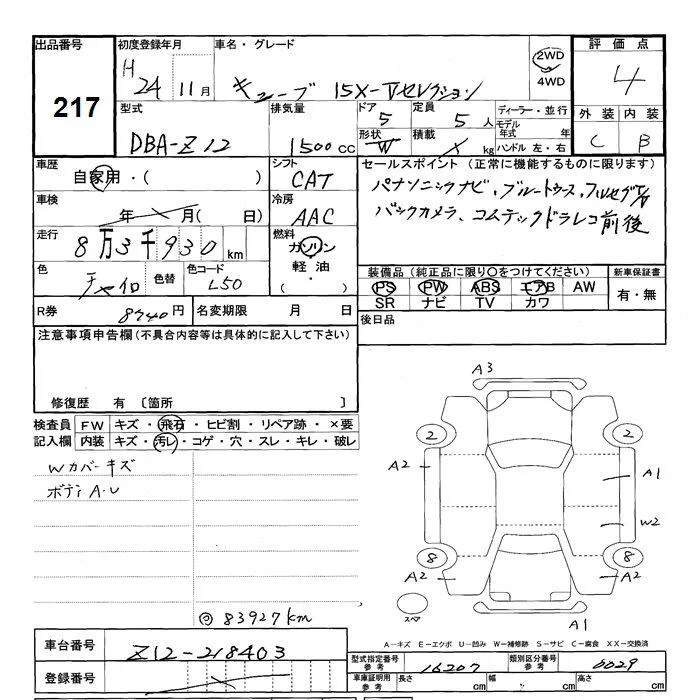 出品番号 初度登録年月 車名・グレード 評価点
217
H 24 11月 キューブ 15X-Vセレクション 2WD 4WD 4
型式 排気量 ドア 定員 ディーラー・並行 外装 内装
DBA-Z12 1500cc 5 5人 モデル年式 年 C B
形状 W 積載 kg ハンドル 左・右
車歴 シフト セールスポイント (正常に機能するものに限ります)
自家用・( ) CAT パナソニックナビ、ブルートゥース、フルセグTV
車検 冷房 バックカメラ、コムテックドラレコ前後
年 月( 日) AAC
走行 8万3千930km 燃料
ガソリン
軽油・
( )
色 色替 色コード 装備品(純正品に限り〇をつけてください) 新車保証書
チャイロ L50 PS PW ABS エアB AW 有・無
SR ナビ TV カワ
R券 8940円 名変期限 月 日 後日品
注意事項申告欄(不具合内容等は具体的に記入して下さい)
修復歴 有 〔箇所 〕
検査員 FW キズ・飛石・ヒビ割・リペア跡・×要
記入欄 内装 キズ・汚レ・コゲ・穴・スレ・キレ・破レ
Wカバーキズ
ボディA.U
83927km
A3
2 2
A2 A1
W2
8 8
A2 A2
スペア A1
A-キズ E-エクボ U-凹み W-補修跡 S-サビ C-腐食 XX-交換済
車台番号 Z12-218403 型式指定番号 参考 16207 類別区分番号 参考 0029
登録番号 車庫証明用 参考 長さ cm 幅 cm 高さ cm